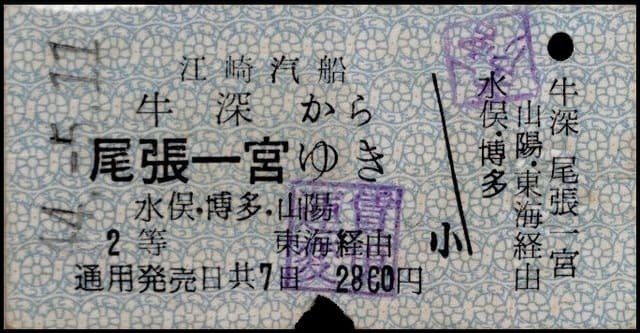 江崎汽船
牛深から
尾張一宮ゆき
水俣・博多・山陽
2等 東海経由
通用発売日共7日 2860円
小
牛深 尾張一宮
山陽・東海経由
水俣・博多